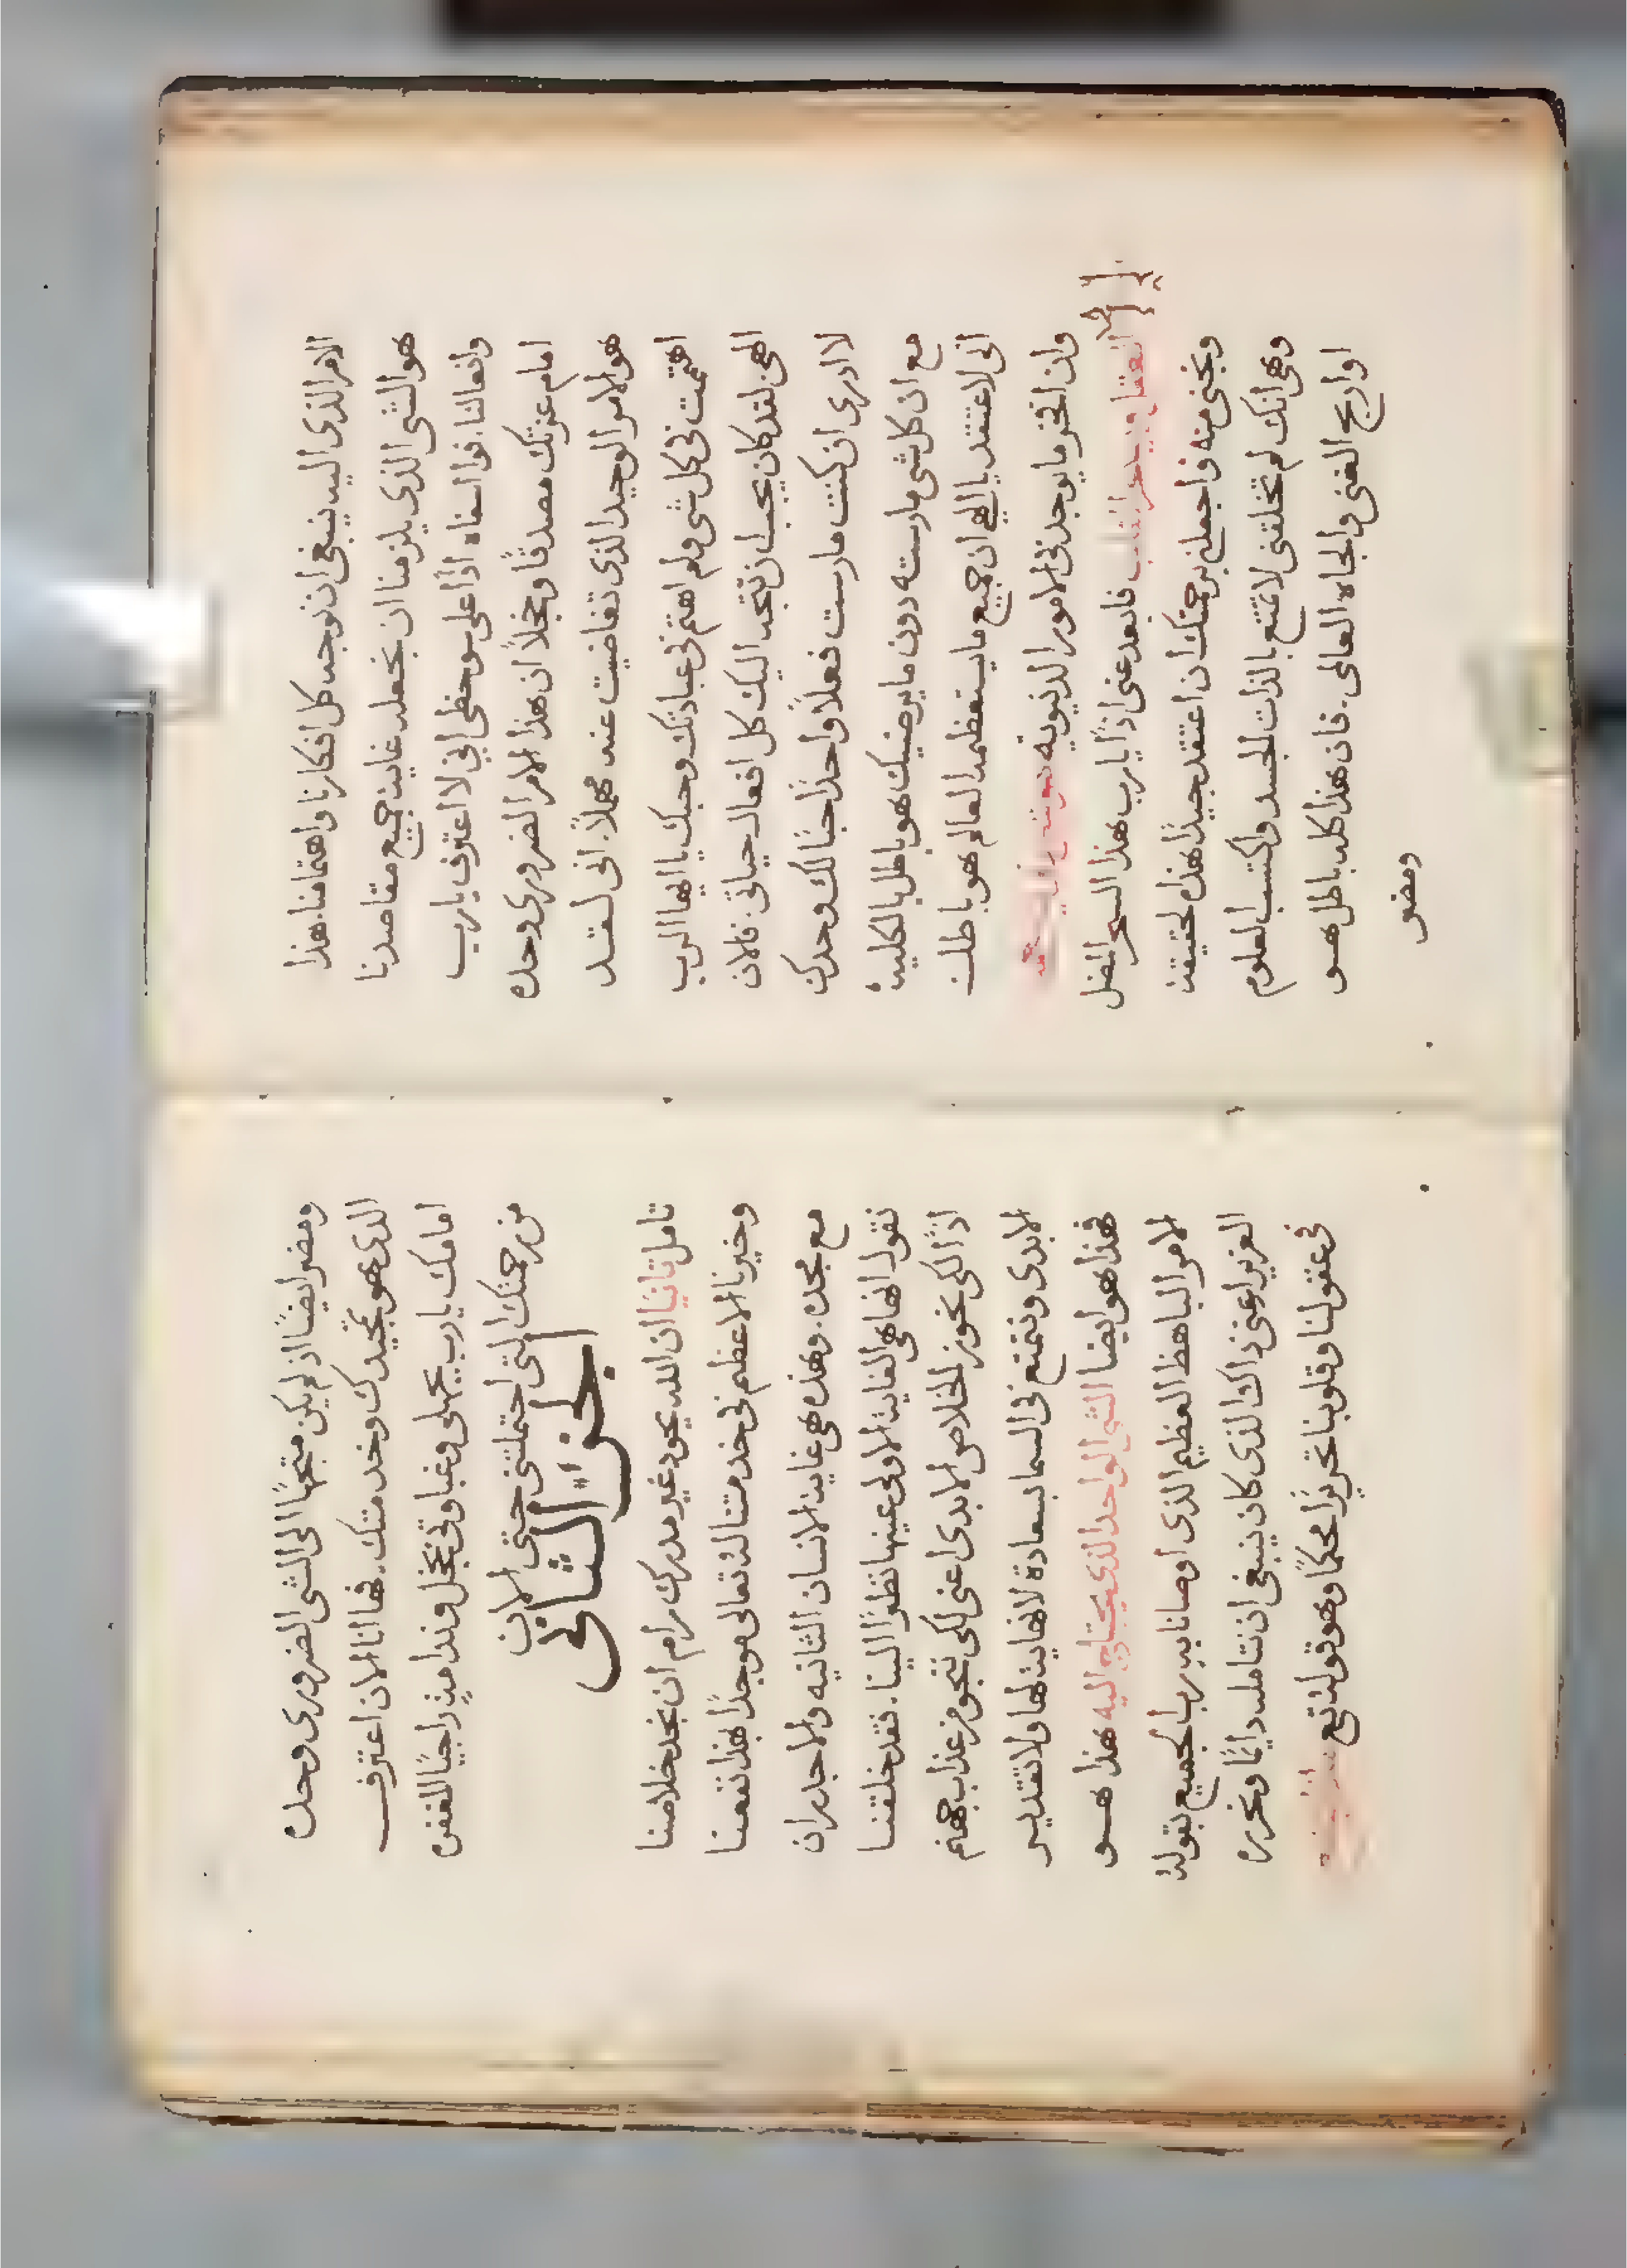 الامر الذى اليه ينبغى ان نوجه كل افكارنا واهتمامنا. هذا
هو الشى الذى يلزمنا ان نجعله غاية جميع مقاصدنا
وافعالنا. فوا اسفاه اذًا على سو حظى انى لا اعترف يارب
امام عزتك مصدقًا وخجلاً ان هذا الامر الضرورى وحده
هو الامر الوحيد الذى تغاضيت عنه مهملاً. انى لقد
اهتميت فى كل شى ولم اهتم فى عبادتك وحبك يا ايها الرب
الهى لقد كان يجب ان تتجه اليك كل افعال حياتى. فالان
لا ادرى ان كنت مارست فعلاً واحدًا حبًا لك وحدك
مع ان كل شى مارسته دون ما يرضيك هو باطل بالكلية
انى لاعتقد يا الهى ان جميع ما يستعظمه العالم هو باطل
وان افخر ما يوجد فى الامور الدنيويه
العقل ويسحر القلب فابعد عنى اذًا يارب هذا السحر المضل
ونجنى منه واجعلنى برحمتك ان اعتقد جيدًا هذه الحقيقة
وهى انك لم تخلقنى لاتمتع بالذات الجسد واكتسب العلوم
او اربح الغنى والجاه العالى. فان هذا كله باطل هو
ومضر
ومضر ايضًا اذ لم يكن متجهًا الى الشى الضرورى وحده
الذى هو تمجيدك وخدمتك. فها انا الان اعترف
امامك يارب بجهلى وغباوتى بخجل وندامةٍ راجيًا الغفره
من رحمتك التى احتملتنى حتى الان
الجزء الثانى
تامل ثانيًا ان الله بجود غير مدرك رام ان نجد خلاصنا
وخيرنا الاعظم فى خدمتنا له تعالى موجدًا بهذا نفعنا
مع مجده. وهذه هى غاية الانسان الثانيه والاجدر ان
نقول انها هى الغاية الاولى عينها نظرًا الينا. فقد خلقنا
اذًا لكى نحوز الخلاص الابدى اعنى لكى ننجو من عذاب جهنم
الابدى ونتمتع فى السما بسعادة لا نهاية لها ولا تقدير
فهذا هو ايضا الشى الواحد الذى يحتاج اليه هذا هو
الامر الباهظ العظيم الذى اوصانا به رب الجميع بقوله
العزيز اعنى ذاك الذى كان ينبغى ان نتامله دايمًا ونحرره
فى عقولنا وقلوبنا تحريرًا محكمًا وهو قوله تع